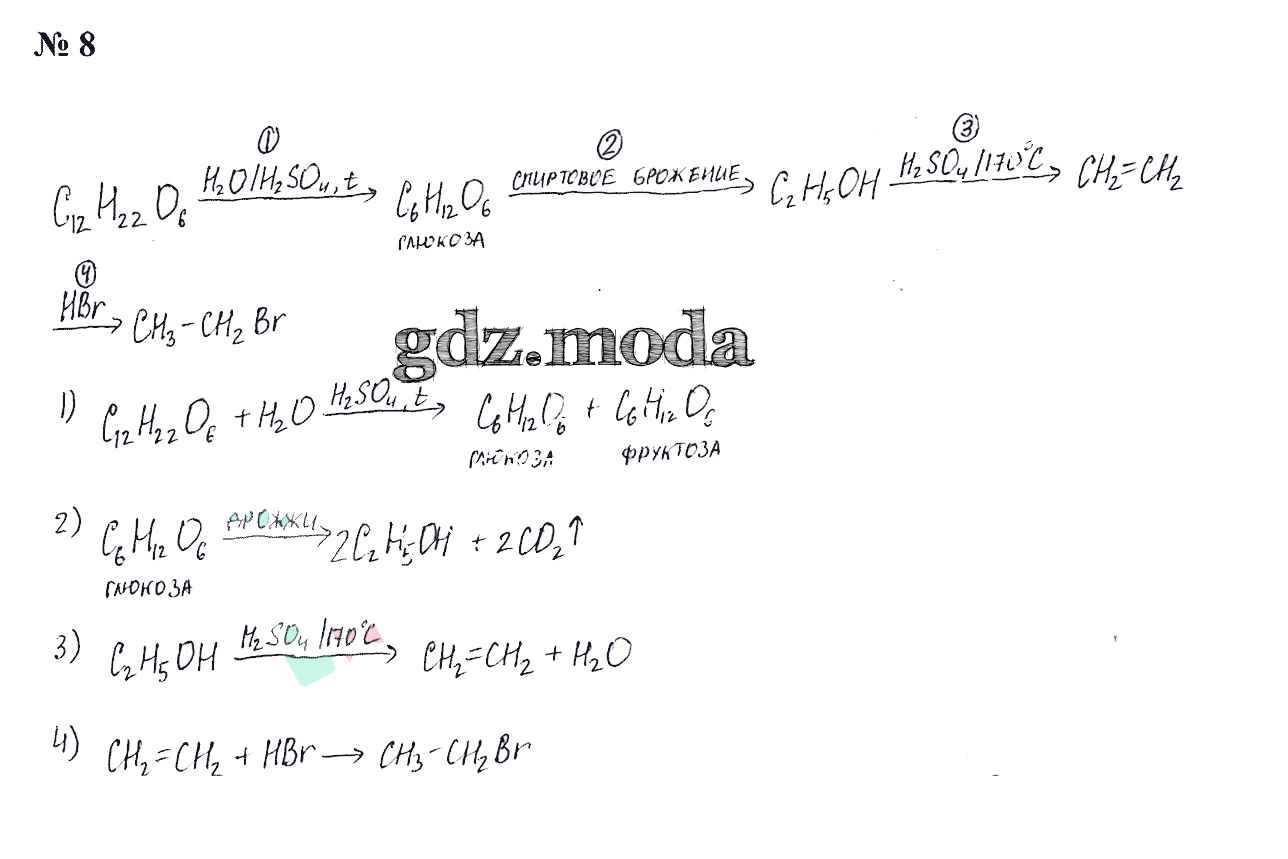 № 8
① ② ③
C₁₂H₂₂O₆ —H₂O/H₂SO₄, t→ C₆H₁₂O₆ —СПИРТОВОЕ БРОЖЕНИЕ→ C₂H₅OH —H₂SO₄/170°C→ CH₂=CH₂
ГЛЮКОЗА
④
—HBr→ CH₃–CH₂Br
gdz.moda
1) C₁₂H₂₂O₆ + H₂O —H₂SO₄, t→ C₆H₁₂O₆ + C₆H₁₂O₆
ГЛЮКОЗА ФРУКТОЗА
2) C₆H₁₂O₆ —ДРОЖЖИ→ 2C₂H₅OH + 2CO₂↑
ГЛЮКОЗА
3) C₂H₅OH —H₂SO₄/170°C→ CH₂=CH₂ + H₂O
4) CH₂=CH₂ + HBr → CH₃–CH₂Br